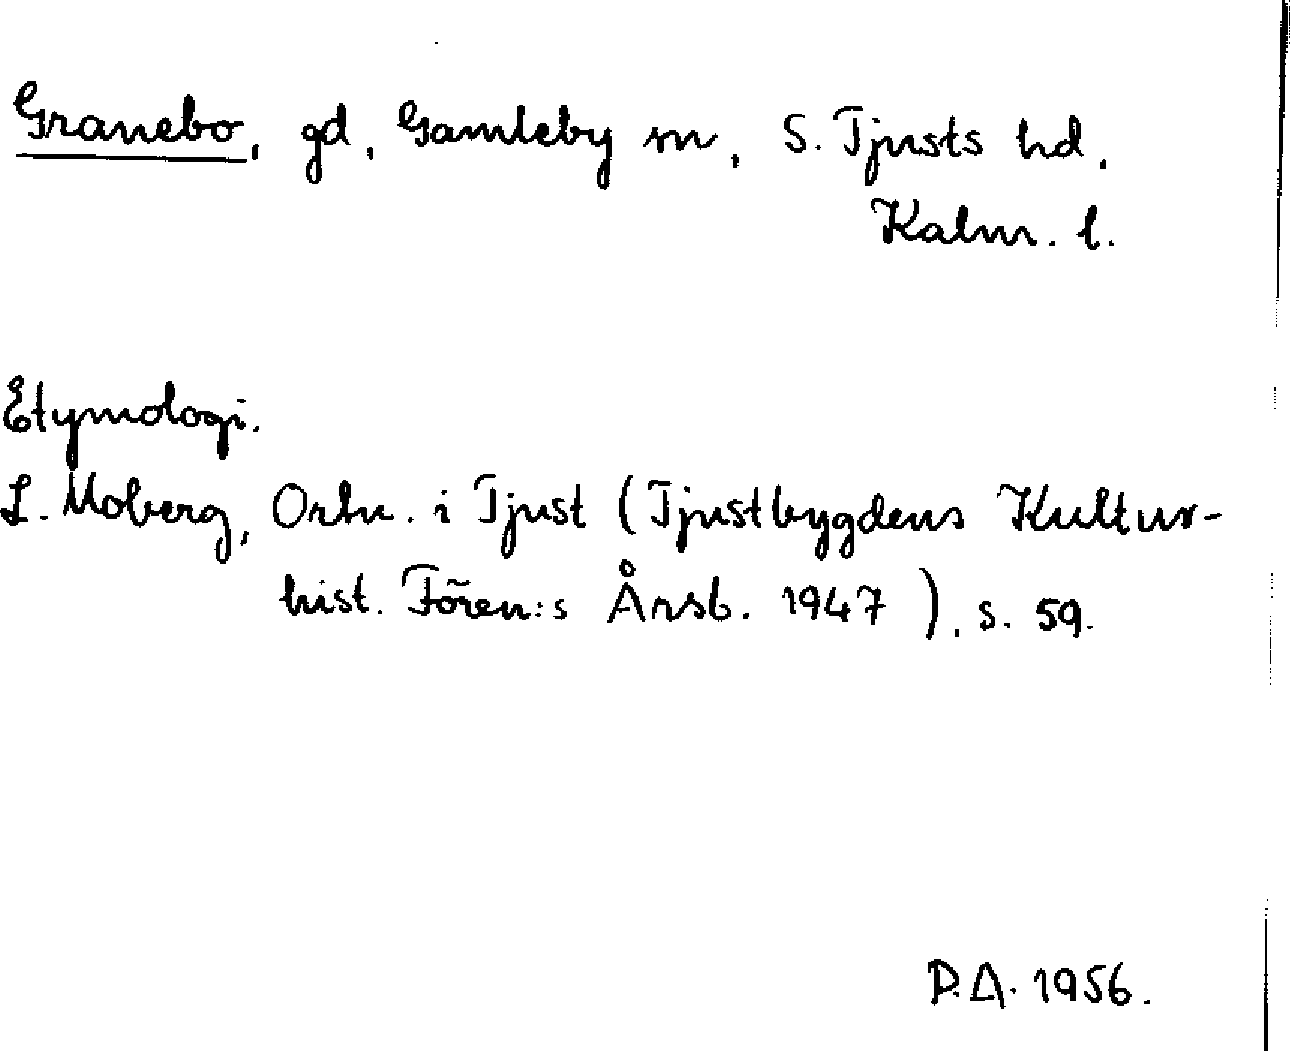 Granebo, gd, Gamleby sn, S. Tjusts hd.
Kalm. l.
Etymologi.
L. Moberg, Ortn. i Tjust (Tjustbygdens Kultur-
hist. Fören:s Årsb. 1947), s. 59.
P.A. 1956.